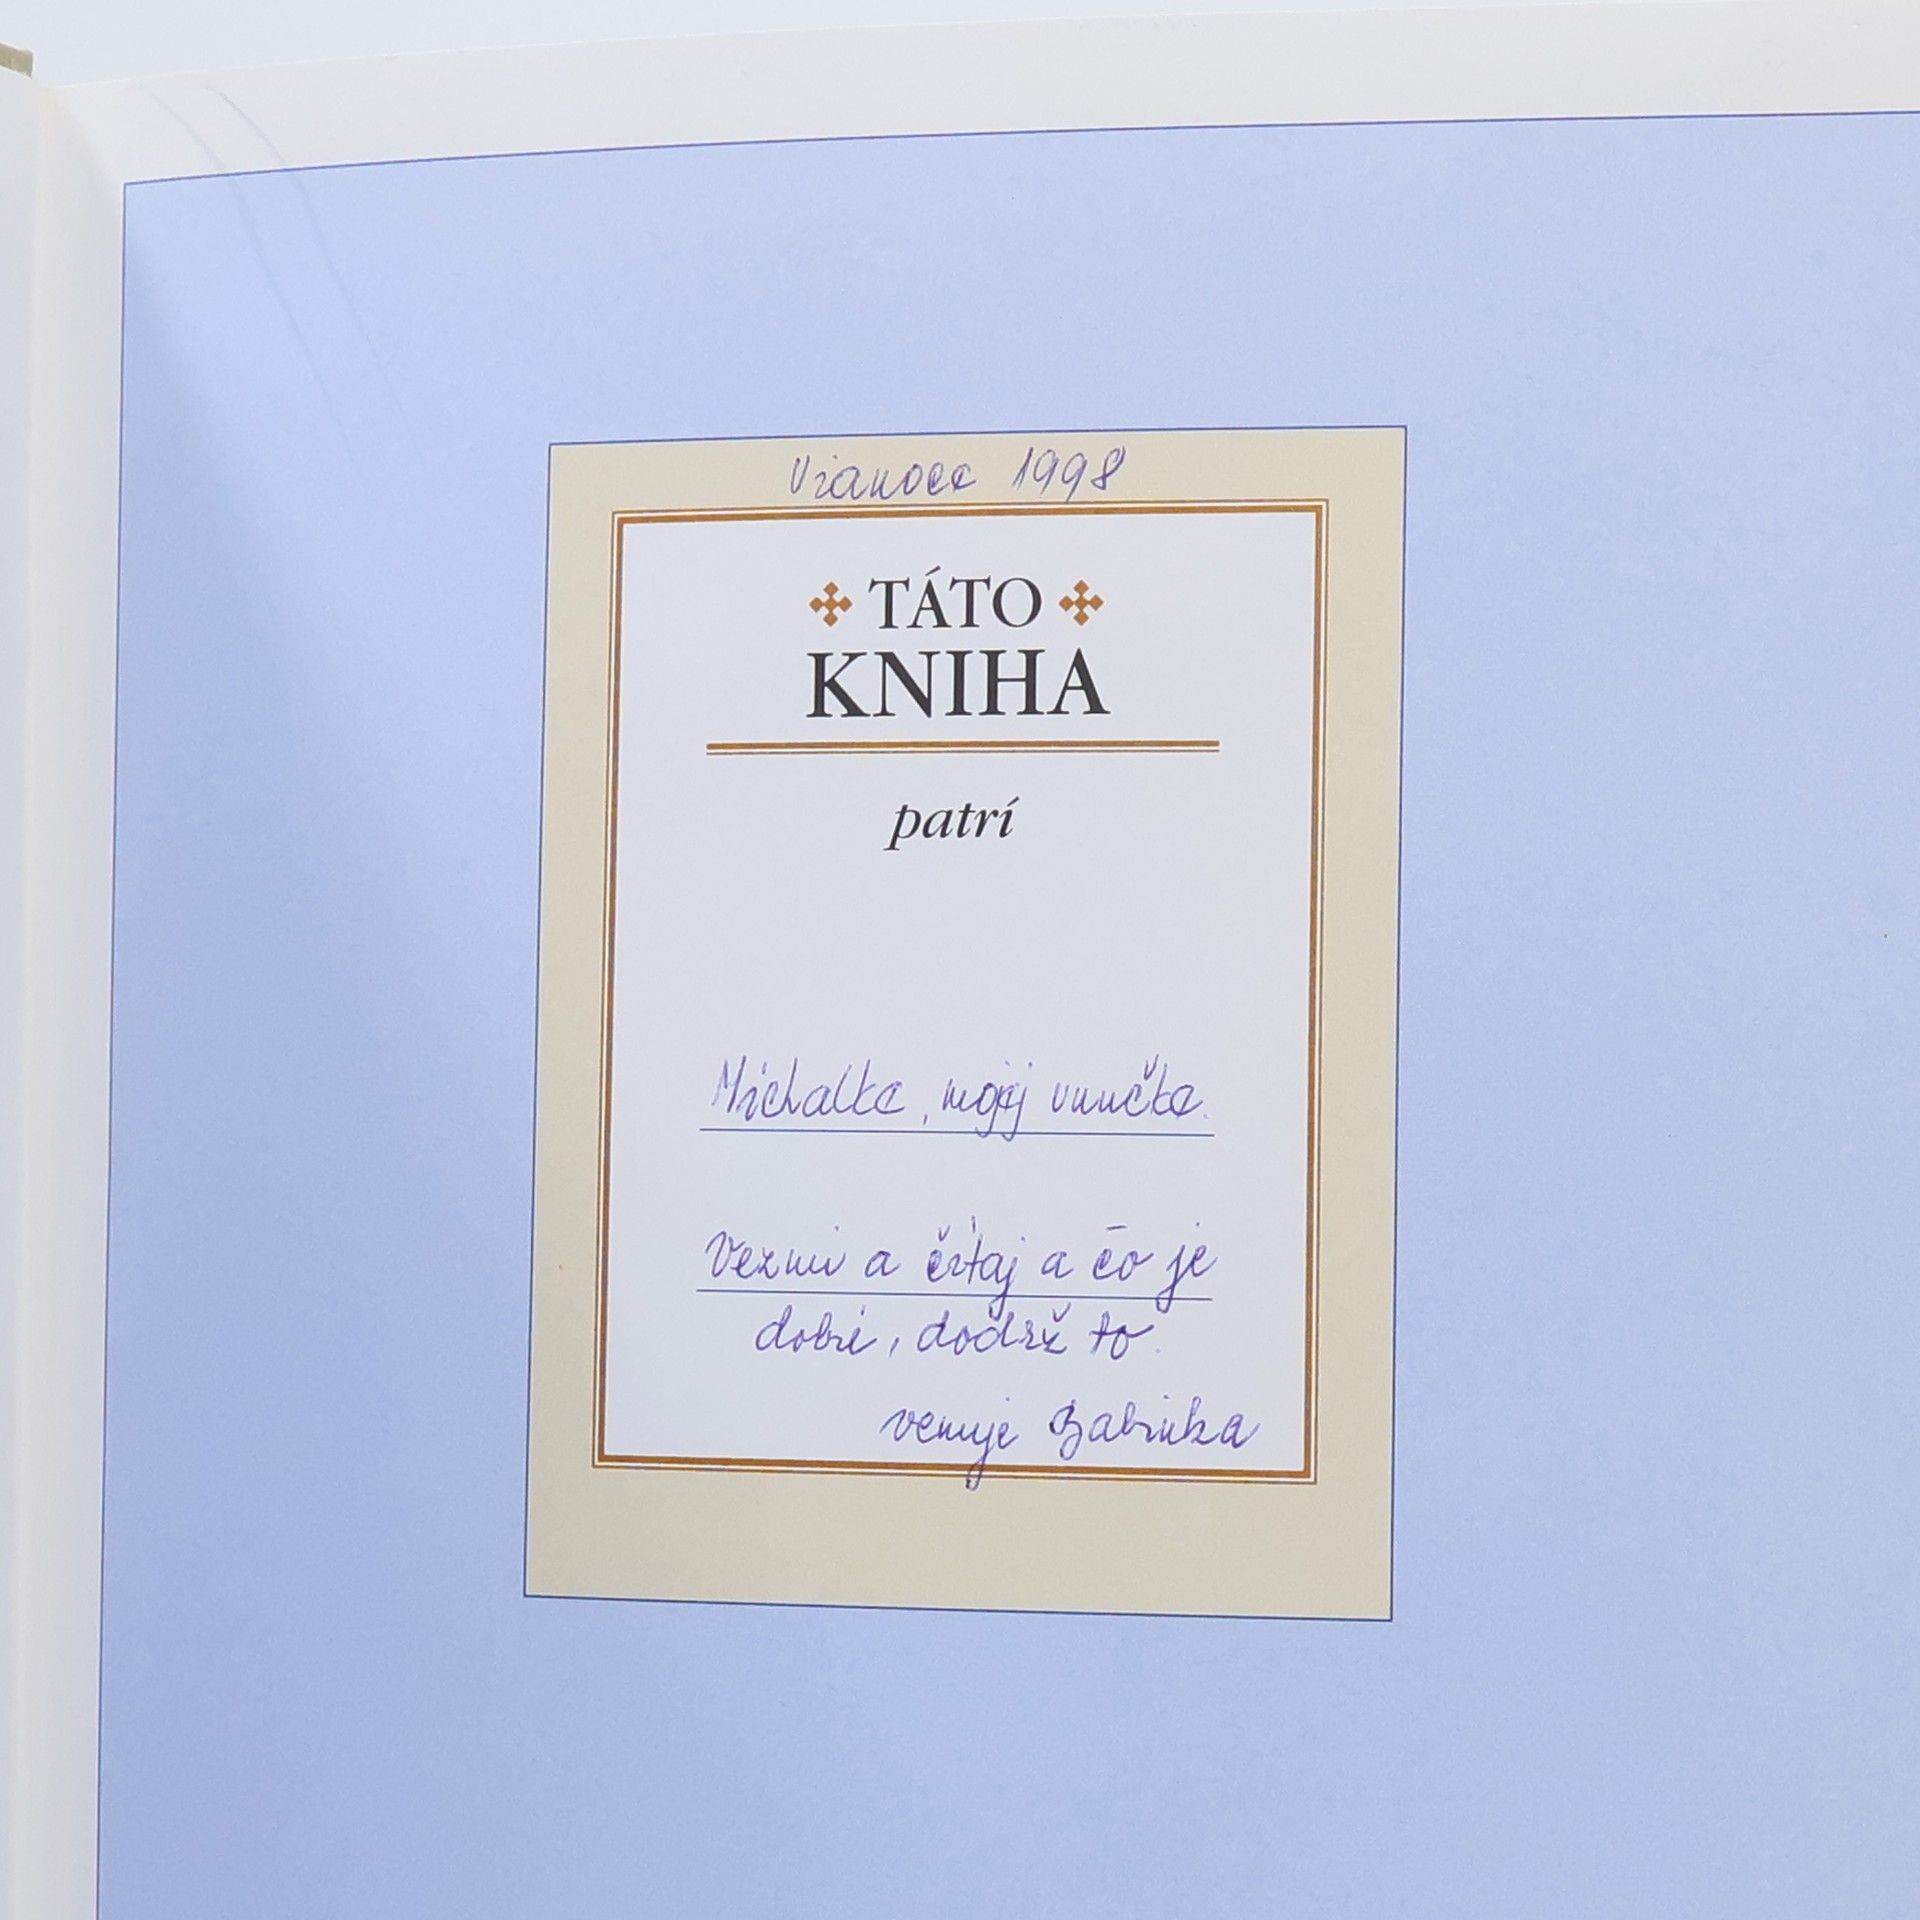 Vianoce 1998
TÁTO
KNIHA
patrí
Michalke, mojej vnučke.
Vezmi a čítaj a čo je
dobré, dodrž to.
venuje Babinka